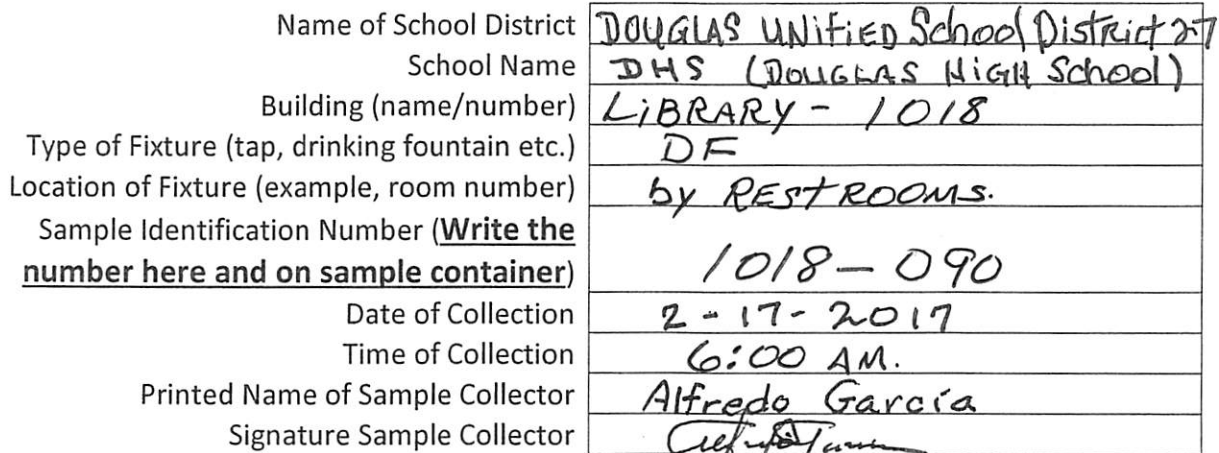 Name of School District DOUGLAS UNiFiED School District 27
School Name DHS (DOUGLAS HiGH School)
Building (name/number) LiBRARY - 1018
Type of Fixture (tap, drinking fountain etc.) DF
Location of Fixture (example, room number) by RESTROOMS.
Sample Identification Number (Write the
number here and on sample container) 1018-090
Date of Collection 2-17-2017
Time of Collection 6:00 AM.
Printed Name of Sample Collector Alfredo García
Signature Sample Collector